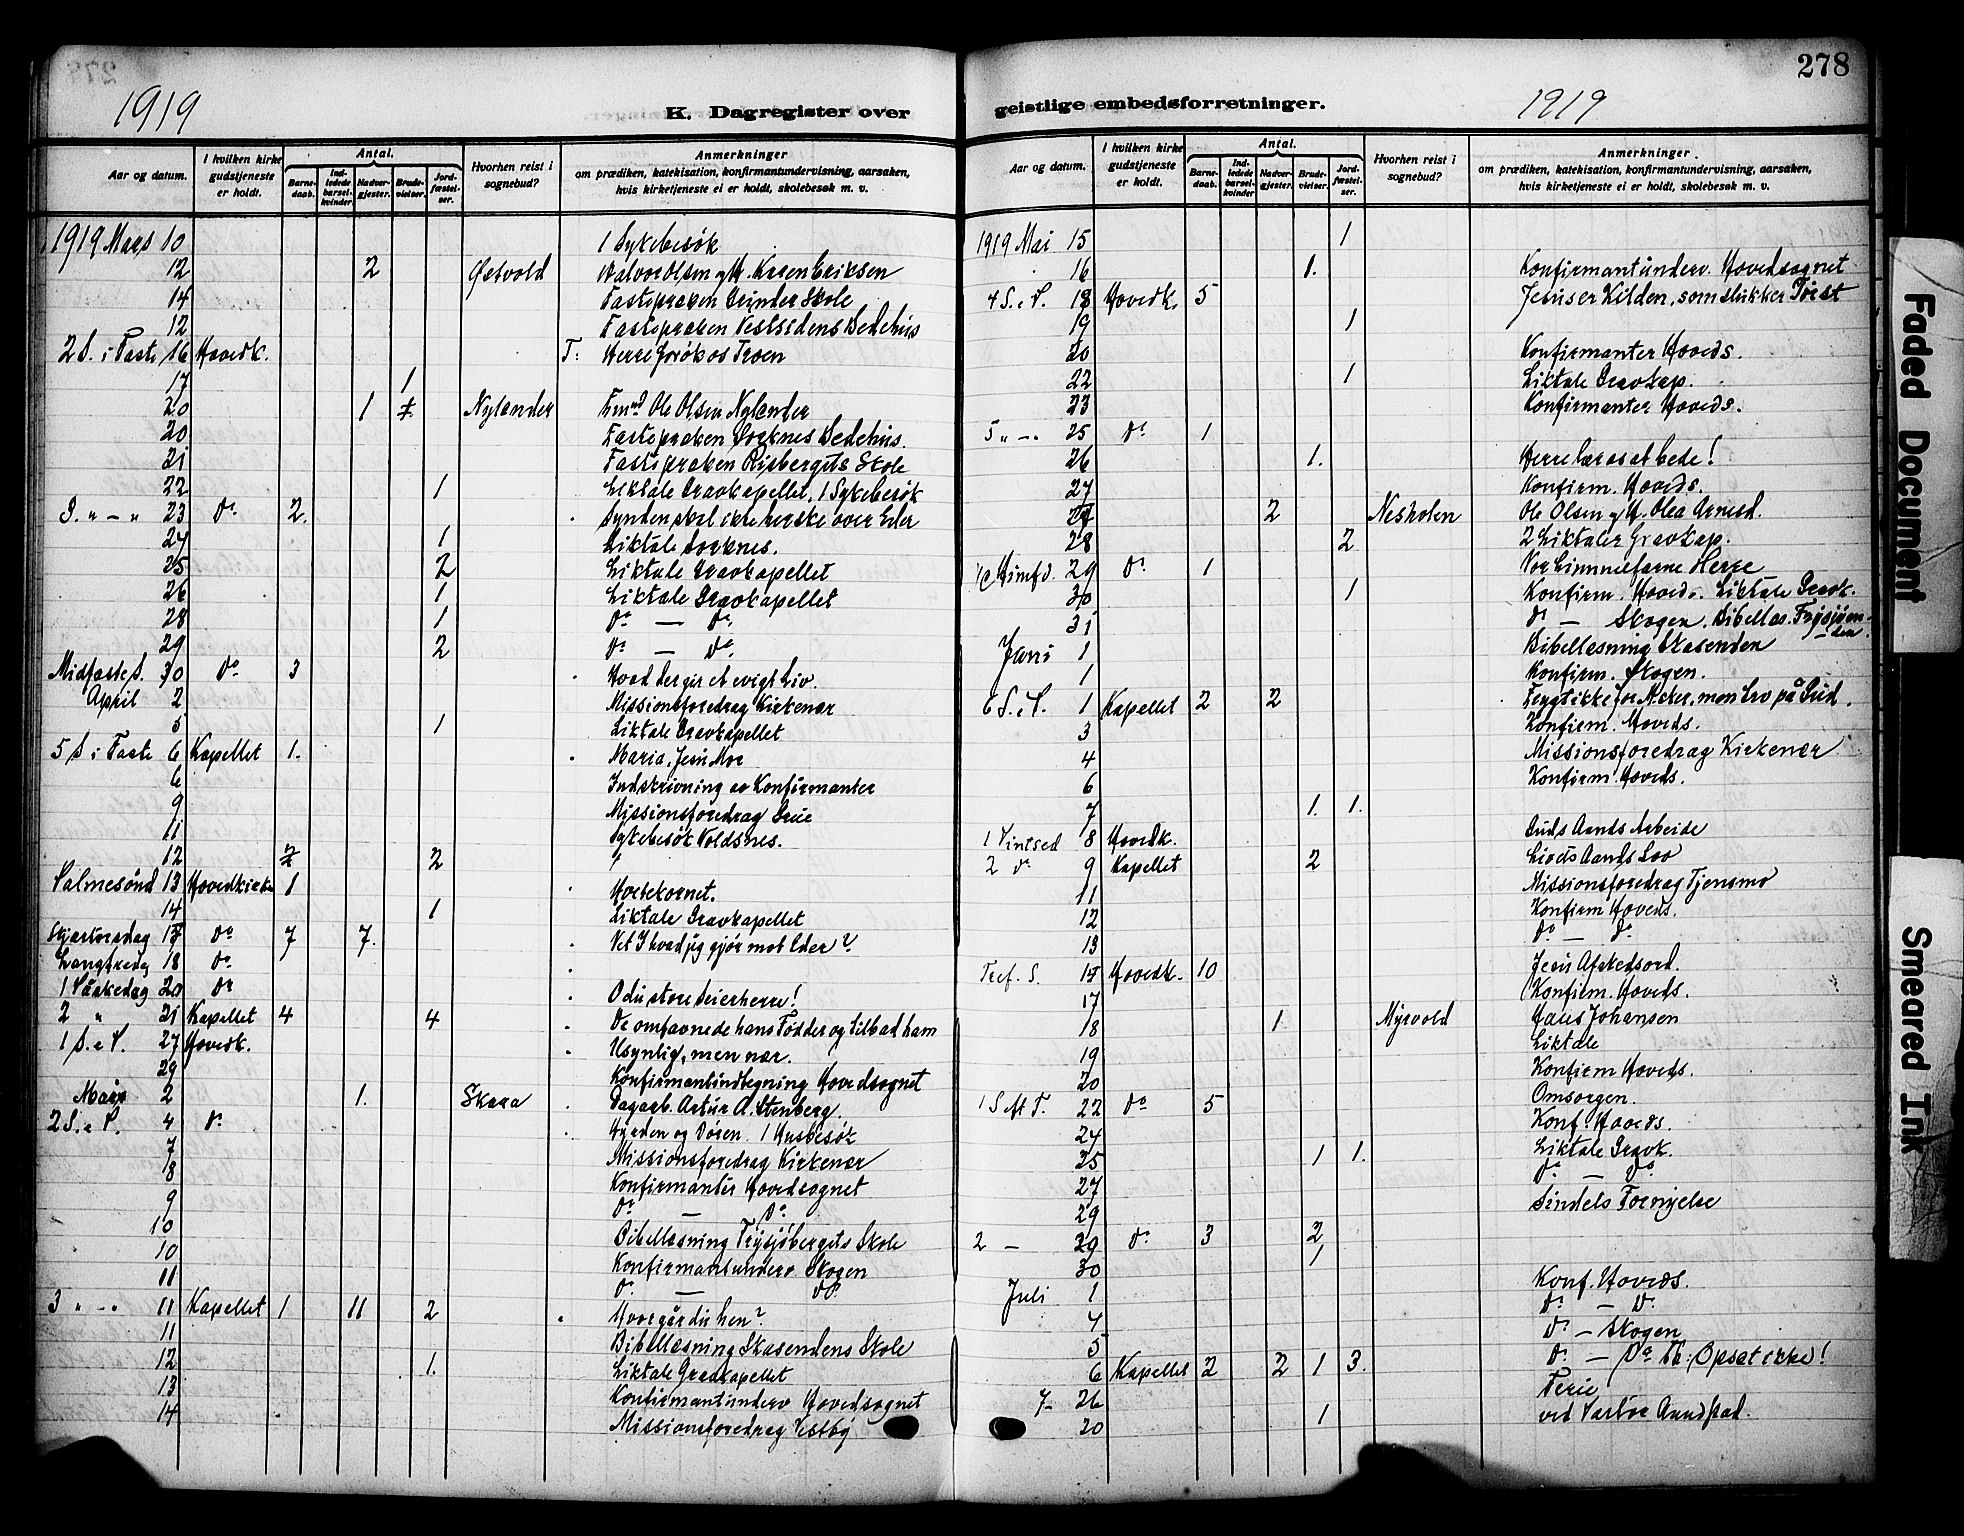 278
1919
K. Dagregister over
Aar og datum.
I hvilken kirke gudstjeneste er holdt.
Antal.
Barne-daab.
Ind-ledede barsel-kvinder.
Nadver-gjester.
Brude-vielser.
Jord-fæstel-ser.
Hvorhen reist i sognebud?
Anmerkninger
om prædiken, katekisation, konfirmantundervisning, aarsaken,
hvis kirketjeneste ei er holdt, skolebesøk m. v.
1919 Mars 10 1 Sykebesøk
12 2 Østvold Halvor Olsen og H. Karen Eriksen
14 Fastepræken Grinder Skole
12 Fastepræken Vestsidens Bedehus
2 S. i Faste 16 Hovedk. T: Herre forøk os Troen
17 1
20 1 Nylænder Ole Olsen Nylænder
20 Fastepræken Sorknes Bedehus.
21 Fastepræken Risbergets Skole
22 1 Liktale Gravkapellet, 1 Sykebesøk
3. " - " 23 Do 2. Synden skal ikke herske over Eder
24 1 Liktale Sorknes.
25 2 Liktale Gravkapellet
26 1 Liktale Gravkapellet
28 1 Do — Do
29 2 Do — Do
Midfaste S. 30 Do 3 Hvad der gir et evigt Liv.
April 2 Missionsforedrag Kirkenær
5 1 Liktale Gravkapellet
5 S i Faste 6 Kapellet 1. Maria, Jesu Mor
6 Indskrivning av Konfirmanter
9 Missionsforedrag Grue
11 Sykebesøk Voldsnes.
12 2 2
Palmesønd 13 Hovedkirke 1 Hvetekornet.
14 1 Liktale Gravkapellet
Skjærtorsdag 17 Do 7 7. Vet I hvad jeg gjør mot Eder?
Langfredag 18 Do
1 Påskedag 20 Do O du store seierherre!
2 " 21 Kapellet 4 4 De omfavnede hans Fødder og tilbad ham
1 S. e P. 27 Hovedk. Usynlig, men nær.
29 Konfirmantindtegning Hovedsognet
2 1. Skara Dagarb. Artur A. Stenberg.
2 S. e P. 4 Do Hyrden og Døren. 1 Husbesøk
7 Missionsforedrag Kirkenær
8 Konfirmanter Hovedsognet
9 Do — Do
10 Bibellæsning Frysjøbergets Skole
10 Konfirmantunderv. Skogen
11 Do — Do
3 " - " 11 Kapellet 1 11 2 Hvor går du hen?
11 Bibellæsning Skasendens Skole
12 1. Liktale Gravkapellet
13 Konfirmantunderv Hovedsognet
14 Missionsforedrag Vestby
geistlige embedsforretninger.
1919
278
Aar og datum.
I hvilken kirke gudstjeneste er holdt.
Antal.
Barne-daab.
Ind-ledede barsel-kvinder
Nadver-gjester.
Brude-vielser.
Jord-fæstel-ser.
Hvorhen reist i sognebud?
Anmerkninger.
om prædiken, katekisation, konfirmantundervisning, aarsaken,
hvis kirketjeneste ei er holdt, skolebesøk m. v.
1919 Mai 15 1
16 1. Konfirmantunderv. Hovedsognet
4 S. e P. 18 Hovedk. 5 Jesus er Kilden, som slukker Tørst
19 1
20 Konfirmanter Hoveds.
22 1 Liktale Gravkap.
23 Konfirmanter Hoveds.
5 " - " 25 Do 1
26 1. Herre lær os at bede!
27 Konfirm. Hoveds.
27 2 Nesholen Ole Olsen og H. Olea Arnesd.
28 2 2 Liktaler Gravkap.
Himfd. 29 Do 1 Vor himmelfarne Herre
30 1 Konfirm. Hoveds. Liktale Gravk.
31 Do — Skogen. Bibellæs. Frysjøen-
den.
Juni 1 Bibellæsning Skasenden
1 Konfirm. Skogen.
6 S. e P. 1 Kapellet 2 2 Frygt ikke for Mennesker, men tro på Gud.
3 Konfirm. Hoveds.
4 Missionsforedrag Kirkenær
6 Konfirm. Hoveds.
7 1. 1.
1 Pintsed 8 Hovedk. Guds Aands Arbeide
2 Do 9 Kapellet 2 Livets Aands Lov
11 Missionsforedrag Tjensmo
12 Konfirm Hoveds.
13 Do — Do
Tref. S. 15 Hovedk. 10 Jesu Afskedsord.
17 Konfirm. Hoveds.
18 1. Myrvold Johansen
19 Liktale
20 Konfirm Hoveds.
1 S eft T. 22 Do 5 Omsorgen.
24 Konf. Hoveds.
25 1 1. Liktale Gravk.
27 Do — Do
29 Sindets Fornyelse
2 — 29 Do 3 2
30 1
Juli 1 Konf. Hoveds.
4 Do — Do
5 Do — Skogen
6 Kapellet 2 2 1 3. Do — Do Th: Opsæt ikke!
7- 26 Ferie
20 1 ved
Faded Document
Smeared Ink